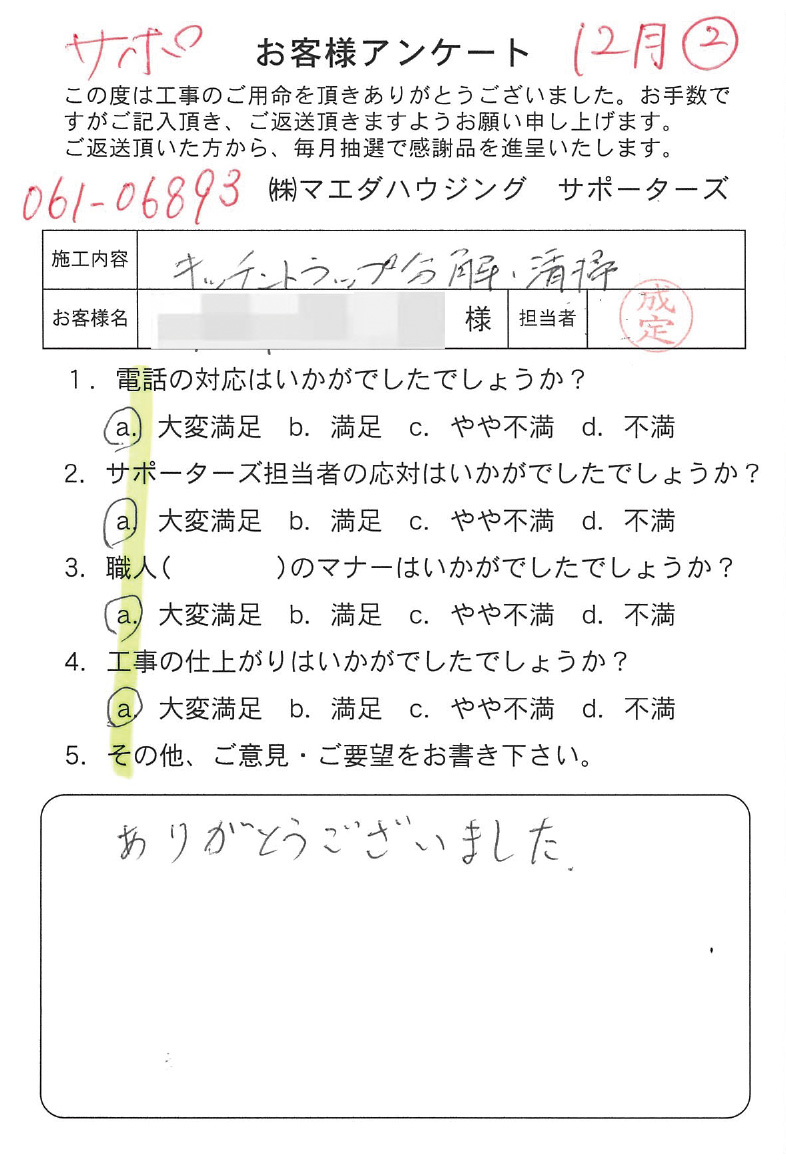 サポ お客様アンケート 12月 ②
この度は工事のご用命を頂きありがとうございました。お手数で
すがご記入頂き、ご返送頂きますようお願い申し上げます。
ご返送頂いた方から、毎月抽選で感謝品を進呈いたします。
061-06893 ㈱マエダハウジング サポーターズ
施工内容 キッチントラップ分解・清掃
お客様名 様 担当者 成定
1. 電話の対応はいかがでしたでしょうか？
a. 大変満足 b. 満足 c. やや不満 d. 不満
2. サポーターズ担当者の応対はいかがでしたでしょうか？
a. 大変満足 b. 満足 c. やや不満 d. 不満
3. 職人( )のマナーはいかがでしたでしょうか？
a. 大変満足 b. 満足 c. やや不満 d. 不満
4. 工事の仕上がりはいかがでしたでしょうか？
a. 大変満足 b. 満足 c. やや不満 d. 不満
5. その他、ご意見・ご要望をお書き下さい。
ありがとうございました.